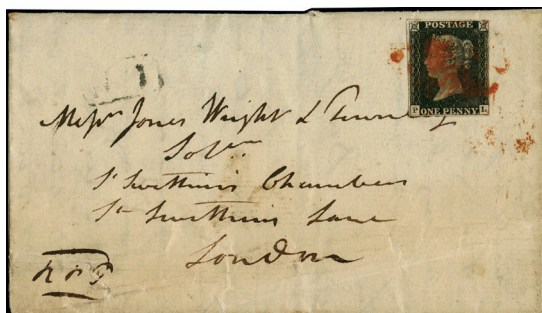 POSTAGE
P ONE PENNY L
Messrs Jones Wright &
Solrs
St Swithins Chambers
St Swithins Lane
London